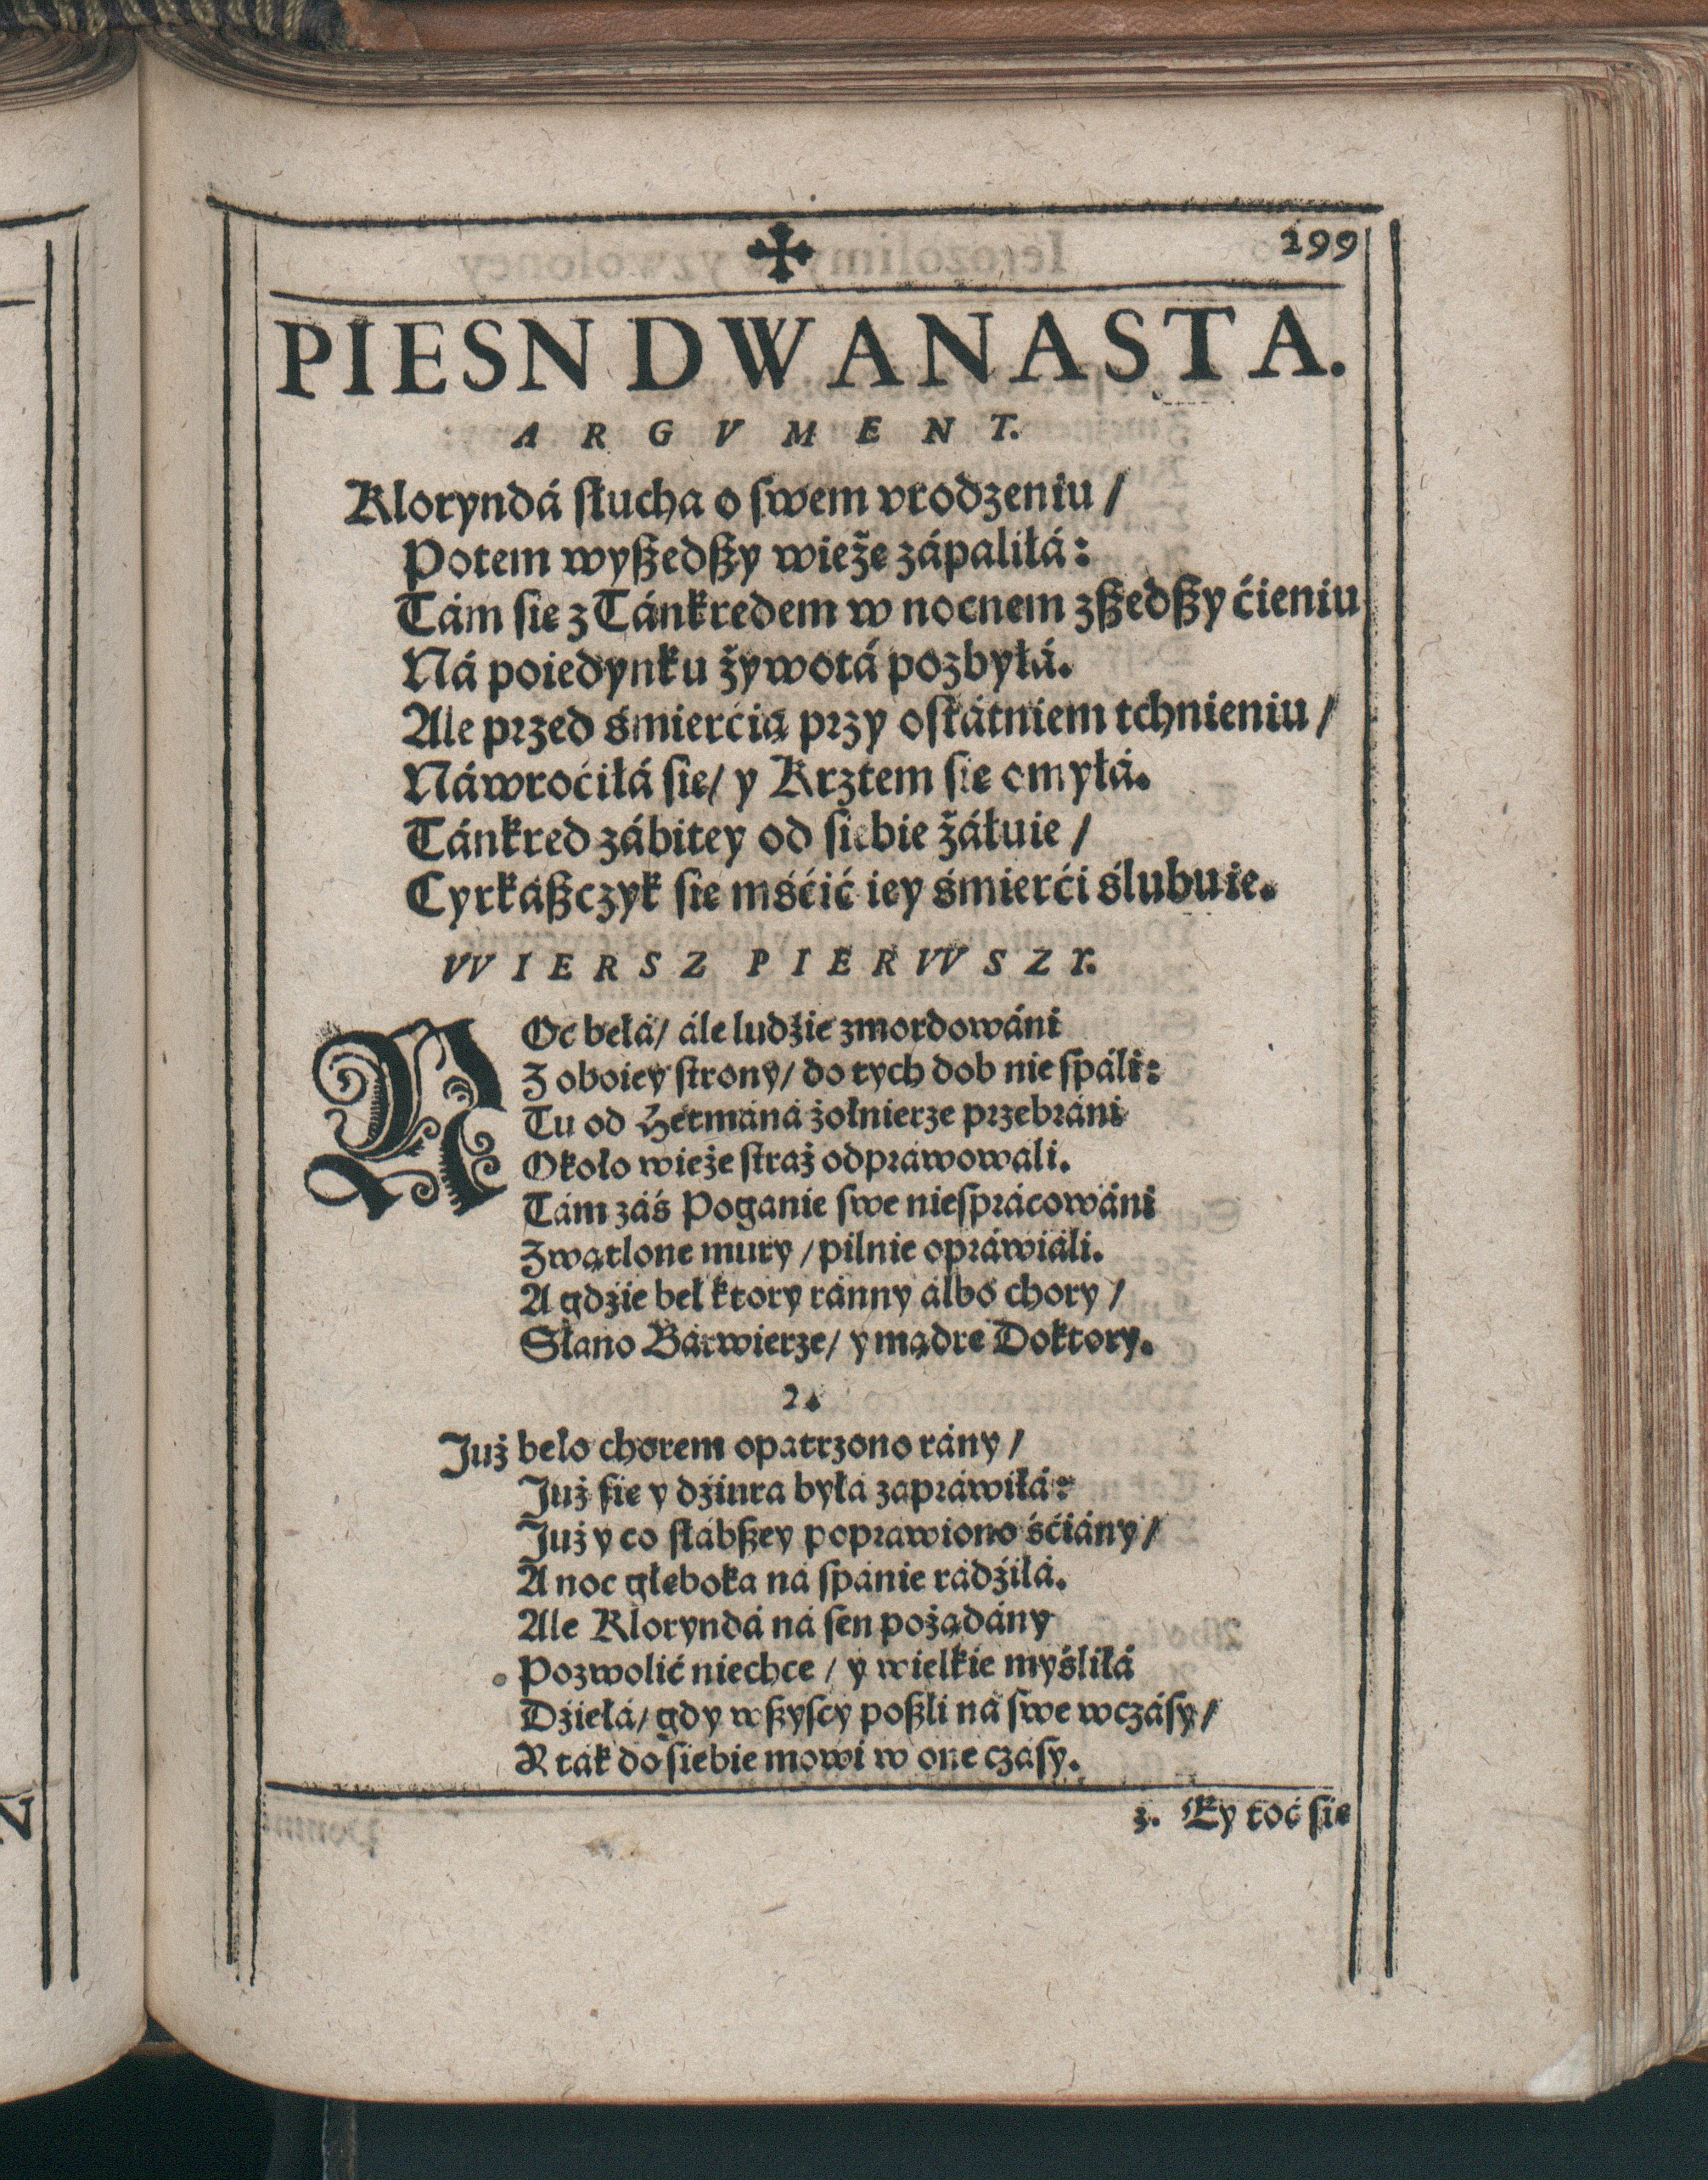 299
PIESN DWANASTA.
ARGVMENT.
Kloryndá słucha o swem vrodzeniu /
Potem wyßedßy wieże zápaliłá:
Tám sie z Tánkredem w nocnem zßedßy ćieniu
Ná poiedynku żywotá pozbyłá.
Ale przed śmierćią przy ostátniem tchnieniu /
Náwroćiłá sie / y Krztem sie omyłá.
Tánkred zábitey od siebie żáłuie /
Cyrkáßczyk sie mśćić iey śmierći ślubuie.
WIERSZ PIERWSZY.
NOc bełá / ále ludźie zmordowáni
Z oboiey strony / do tych dob nie spáli:
Tu od Hetmáná żołnierze przebráni
Około wieże straż odpráwowali.
Tám záś Poganie swe niesprácowáni
Zwątlone mury / pilnie opráwiáli.
A gdźie beł ktory ránny álbo chory /
Słano Bárwierze / y mądre Doktory.
2.
Już beło chorem opatrzono rány /
Już sie y dźiura była zapráwiłá:
Już y co słábßey poprawiono śćiány /
A noc głęboka ná spánie rádźiłá.
Ale Kloryndá ná sen pożądány
Pozwolić niechce / y wielkie myśliłá
Dźiełá / gdy wßyscy poßli ná swe wczásy /
Y ták do siebie mowi w one czásy.
3. Ey toć sie
N